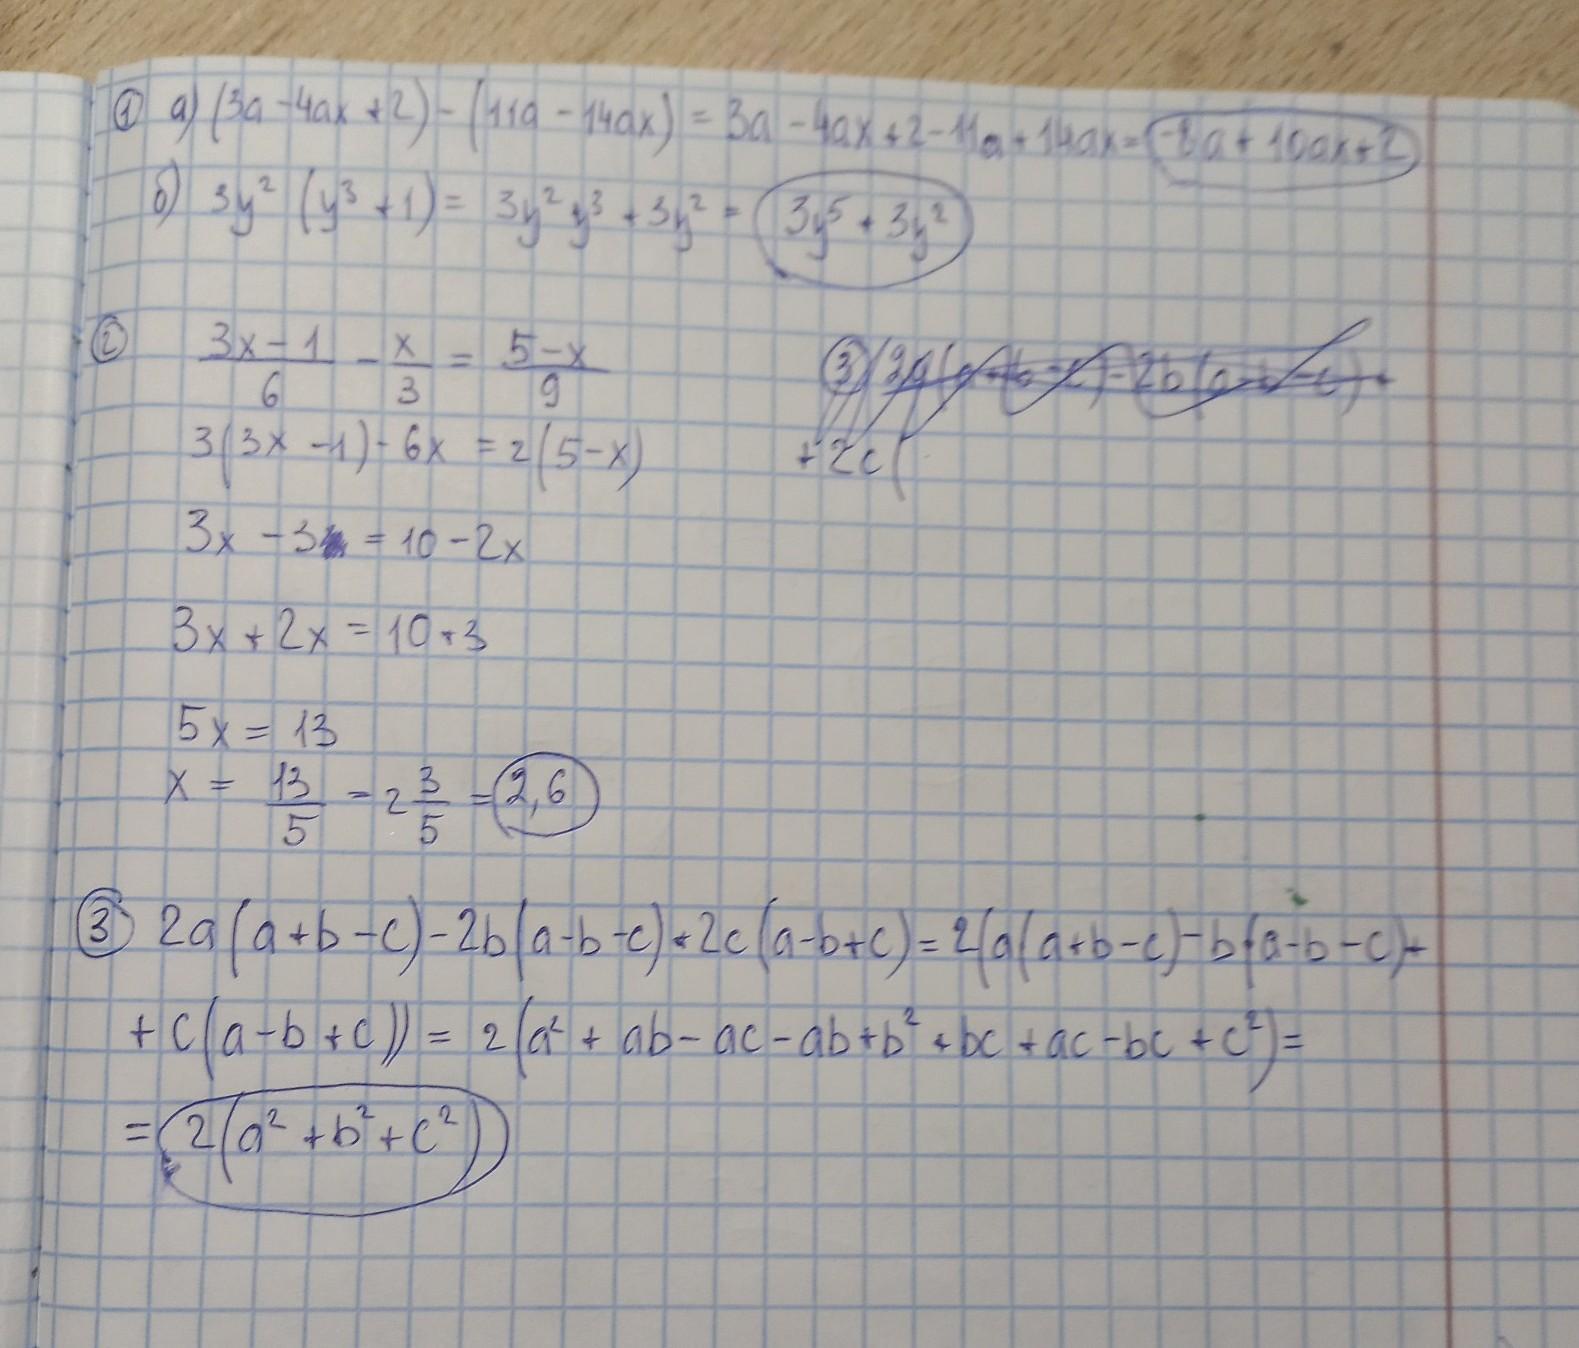 ① а) (3a - 4ax + 2) - (11a - 14ax) = 3a - 4ax + 2 - 11a + 14ax = -8a + 10ax + 2
б) 3y² (y³ + 1) = 3y² y³ + 3y² = 3y⁵ + 3y²
② (3x - 1)/6 - x/3 = (5 - x)/9
3(3x - 1) - 6x = 2(5 - x)
3x - 3 = 10 - 2x
3x + 2x = 10 + 3
5x = 13
x = 13/5 = 2 3/5 = 2,6
③ (2a(a + b - c) - 2b(a - b - c) +
+ 2c(
③ 2a(a + b - c) - 2b(a - b - c) + 2c(a - b + c) = 2(a(a + b - c) - b(a - b - c) +
+ c(a - b + c)) = 2(a² + ab - ac - ab + b² + bc + ac - bc + c²) =
= 2(a² + b² + c²)